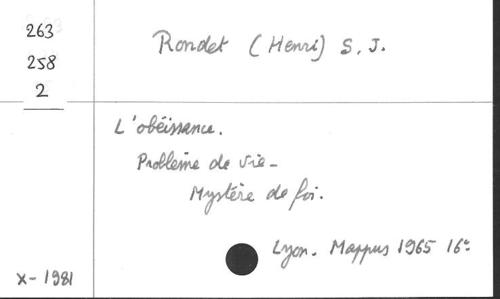 263
258
2
Rondet (Henri) S. J.
L'obéissance.
Problème de vie -
Mystère de foi.
Lyon. Mappus 1965 16°
X - 1981